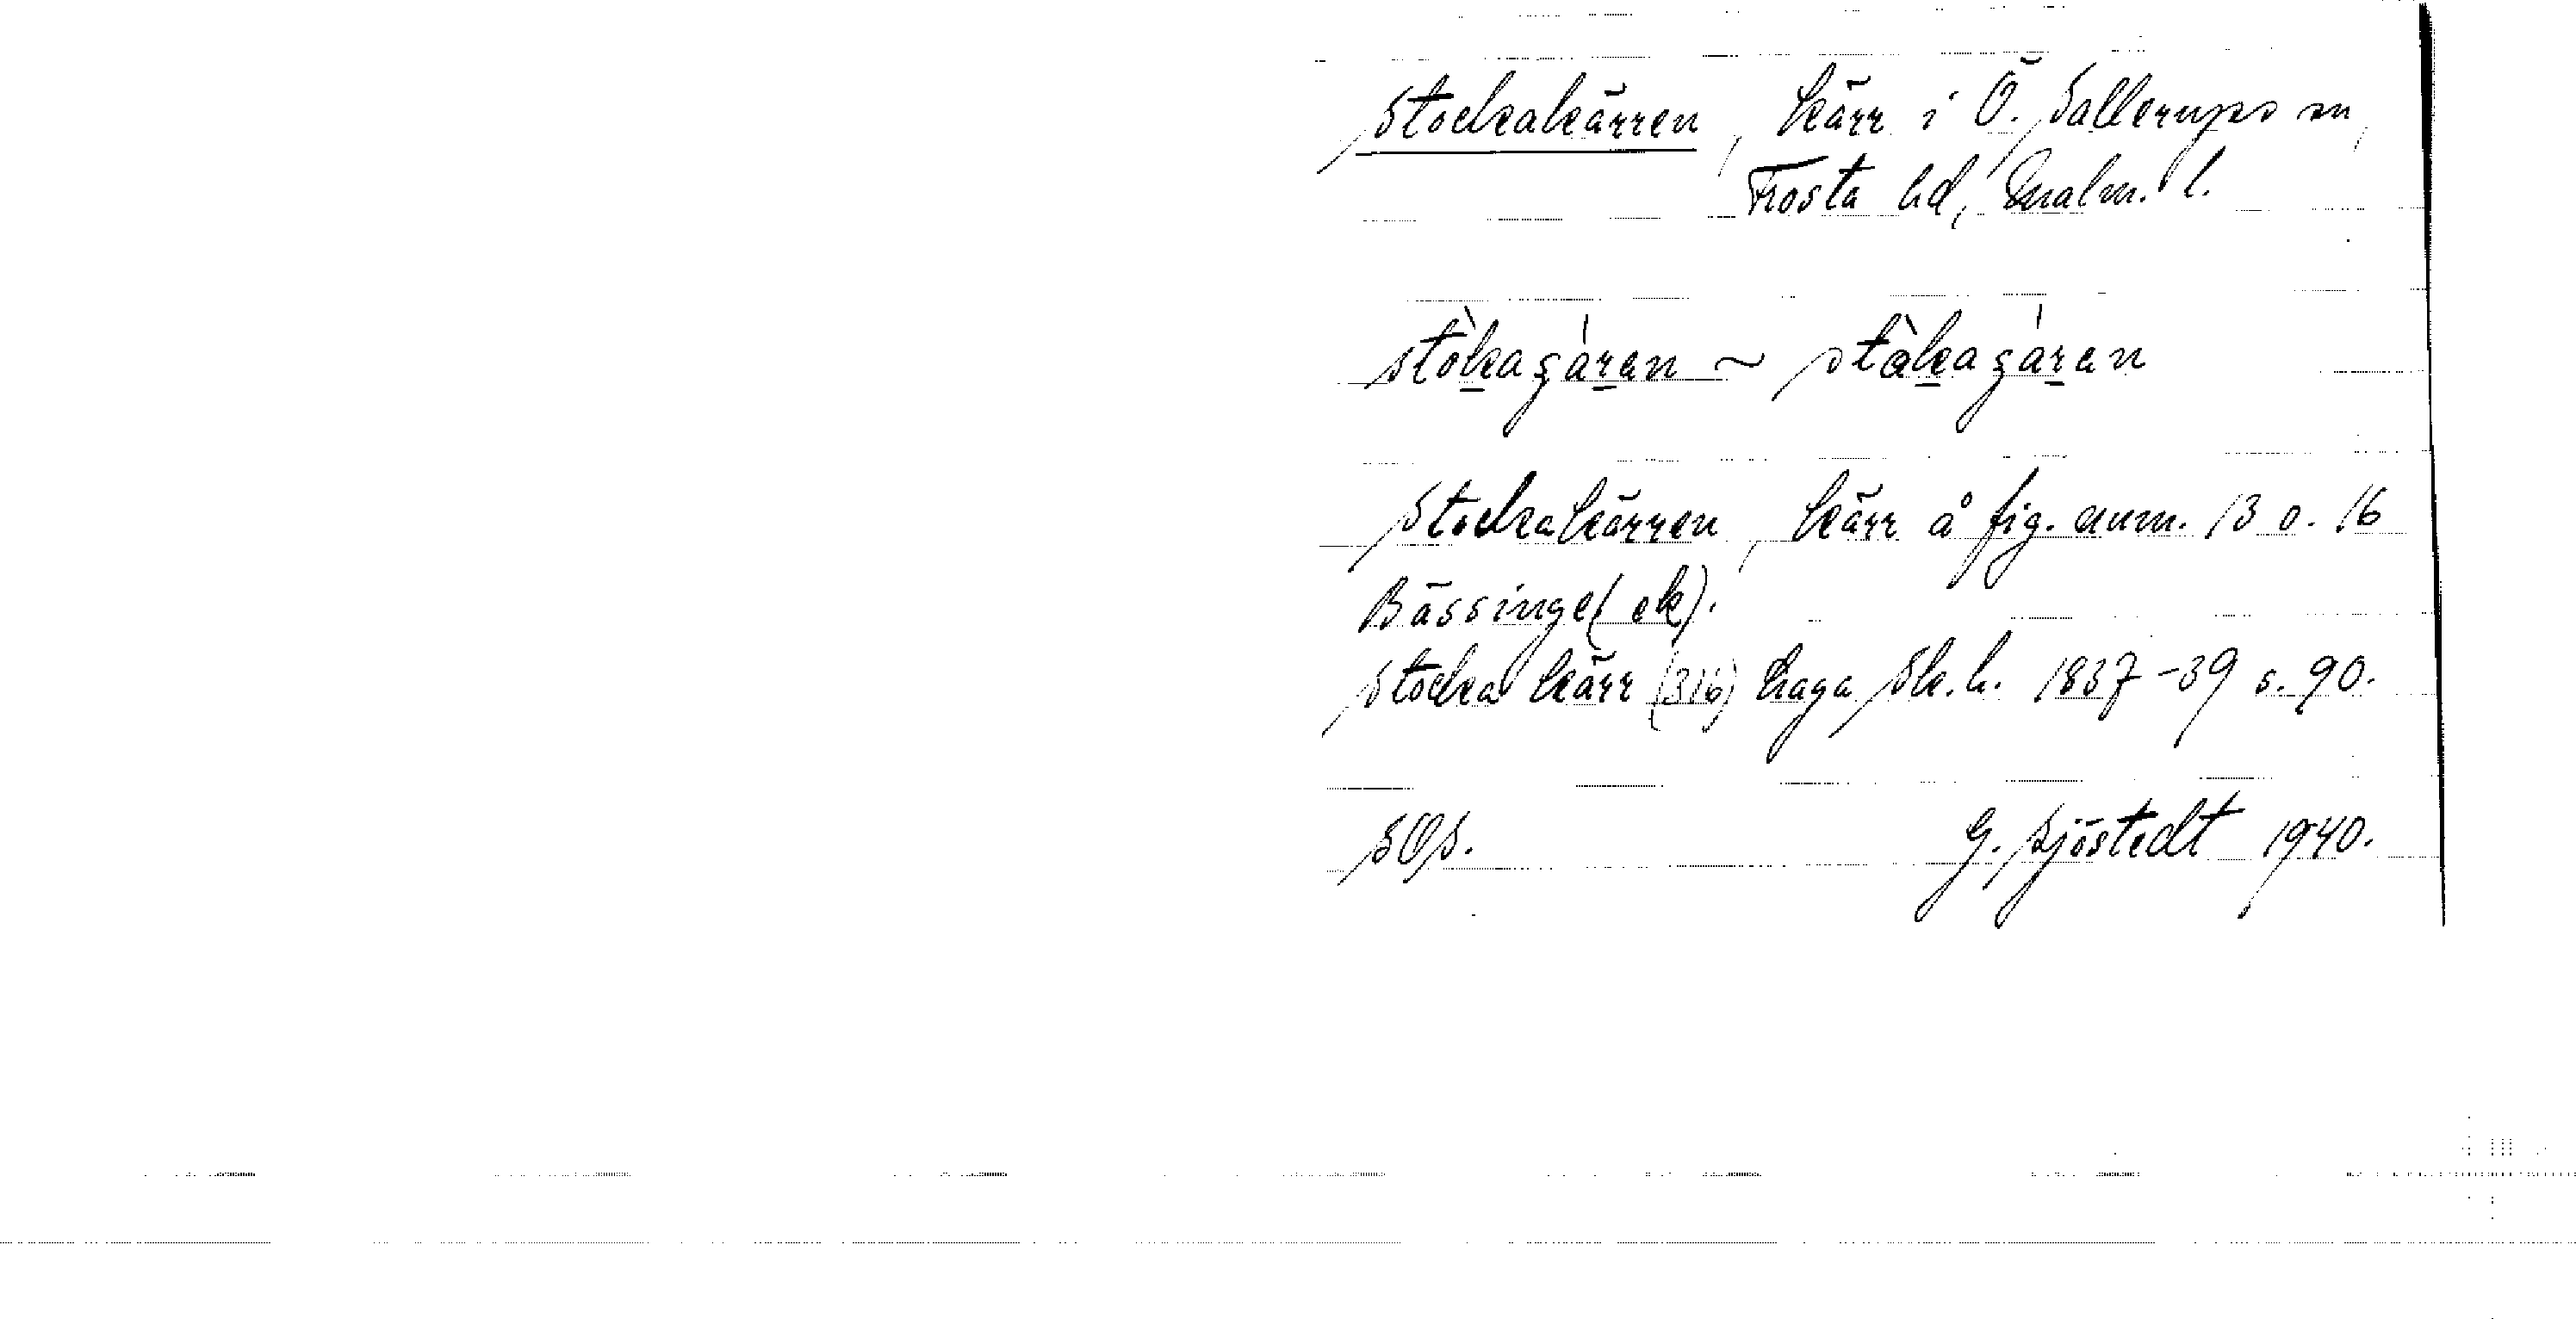 Stockakärren, kärr i Ö. Sallerups sn,
Frosta hd, Malm. l.
stòkagàran ~ stàkagàran
Stockakärren, kärr å fig. num. 13 o. 16
Bässinge (ek).
Stocka kärr (316) Laga Sk.h. 1837-39 s. 90.
SOS. G. Sjöstedt 1940.